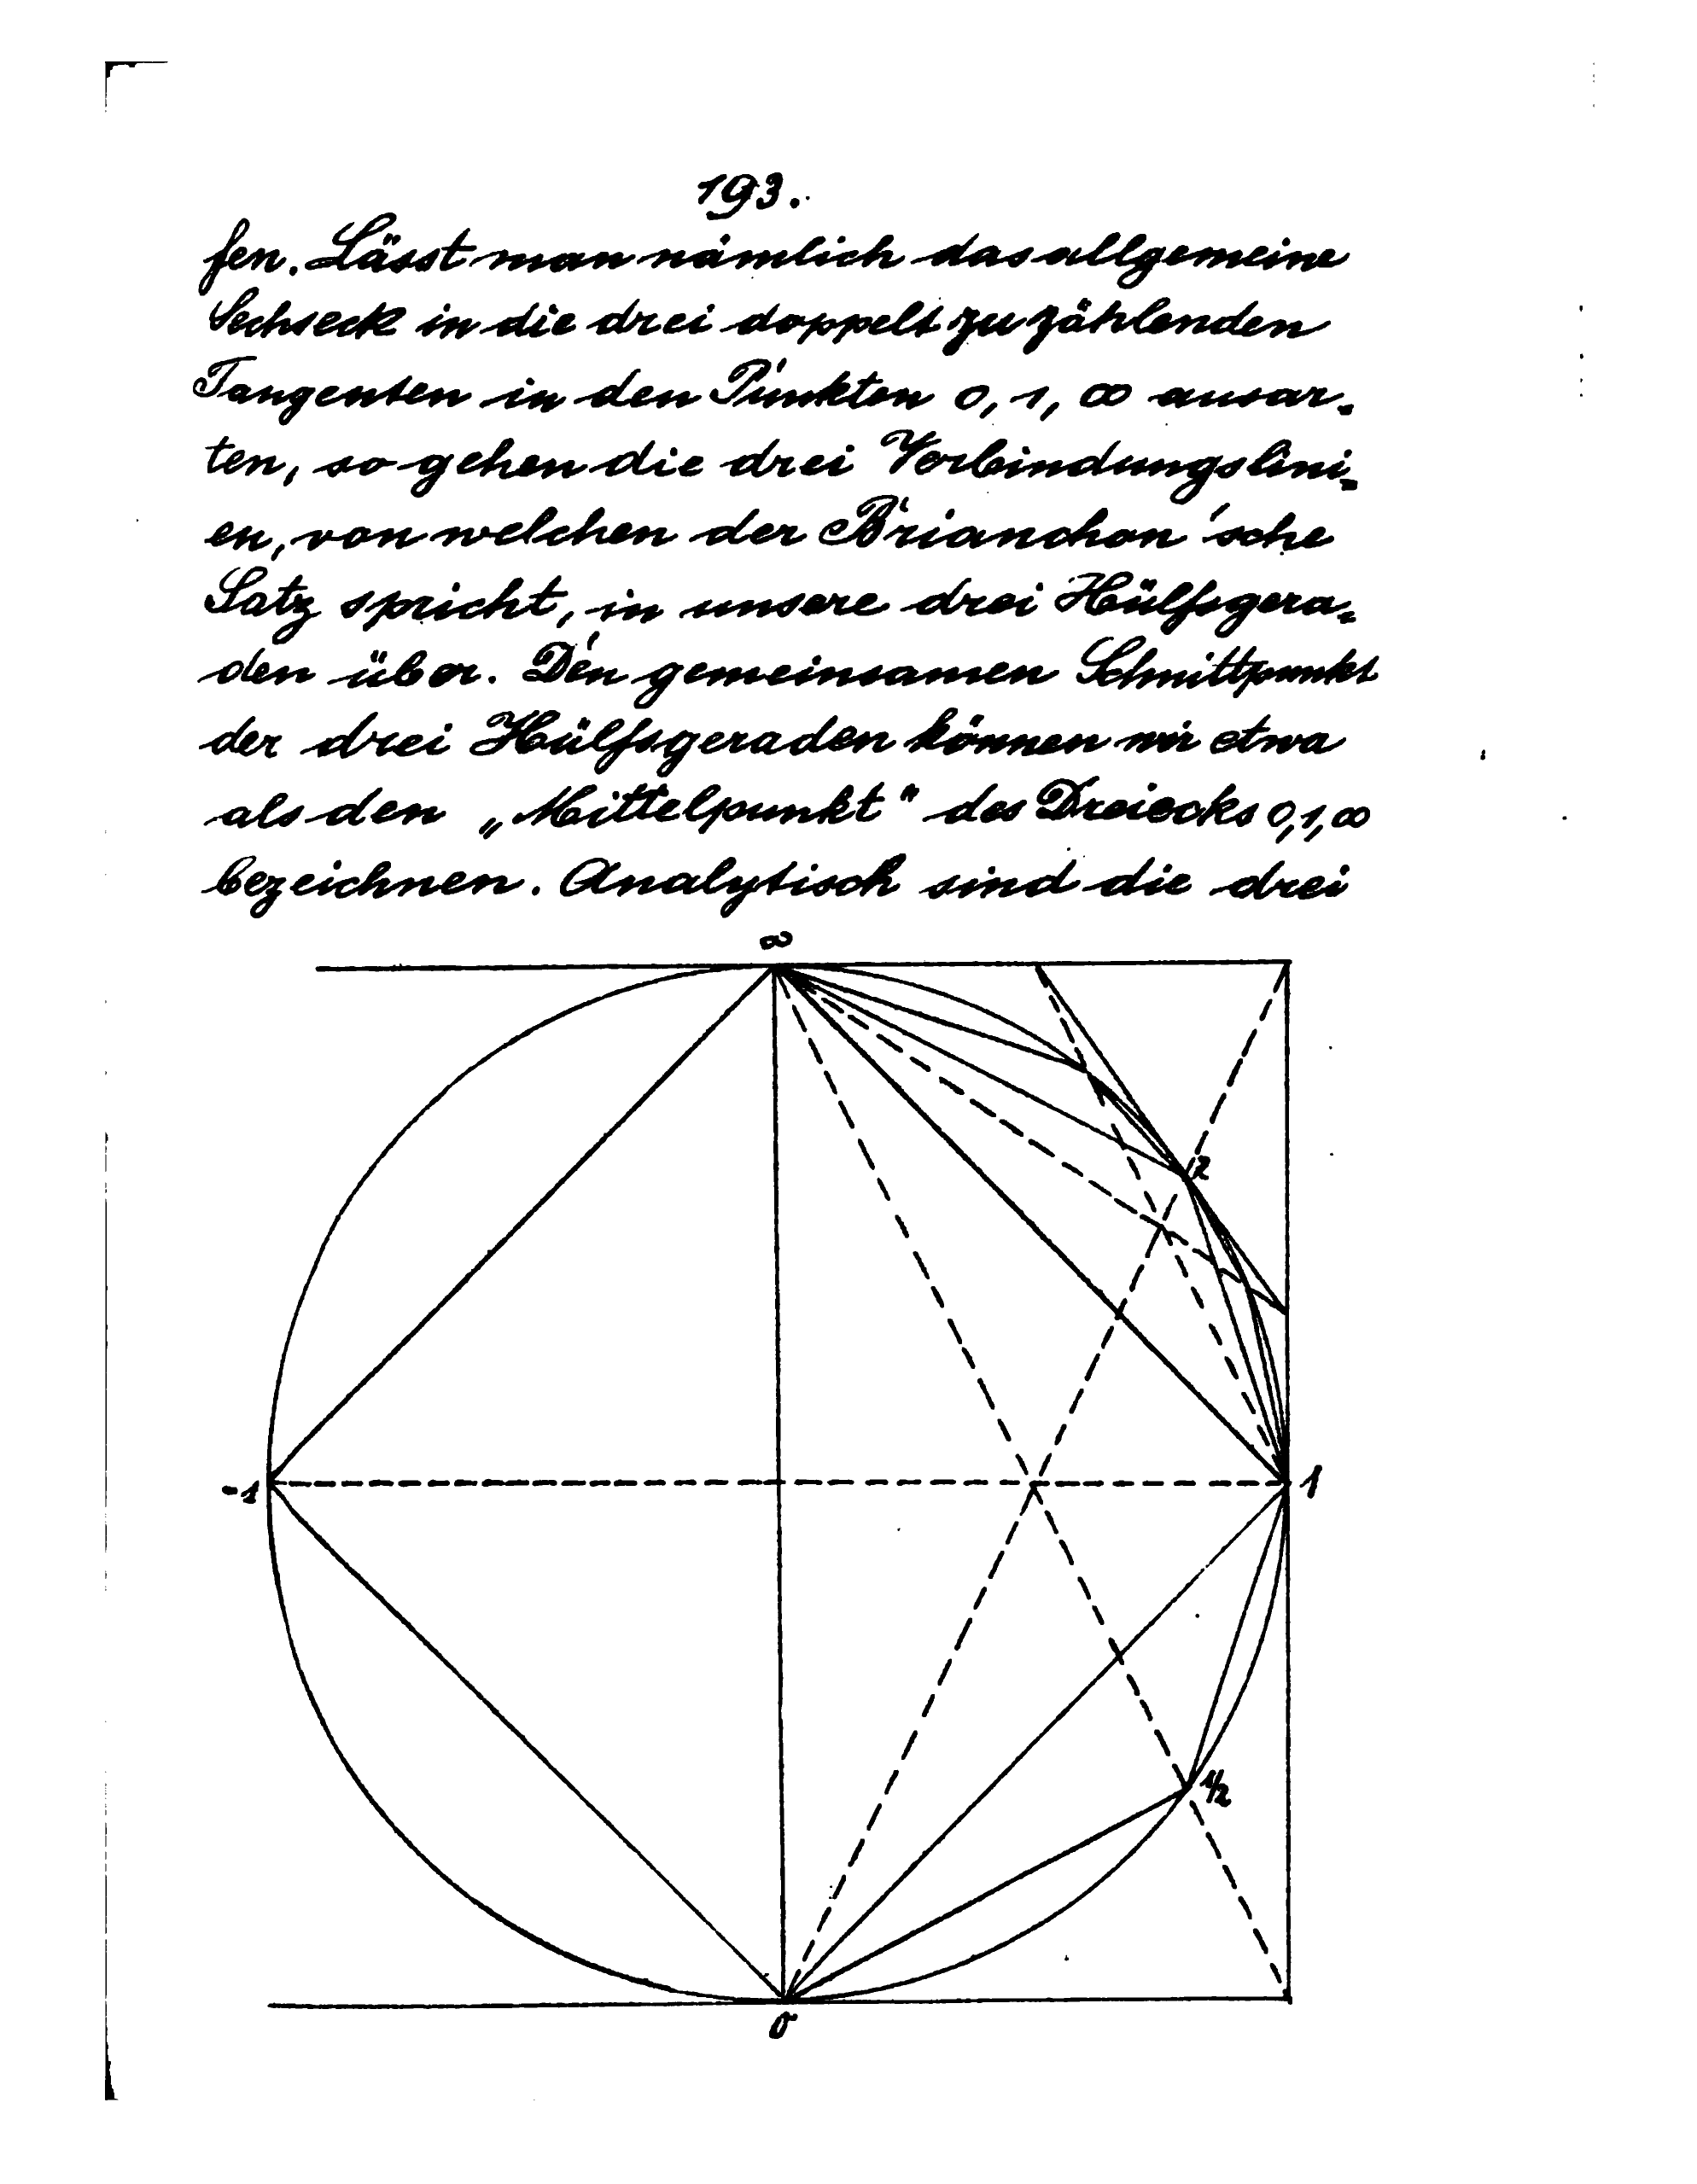 193.
fen. Lässt man nämlich das allgemeine
Sechseck in die drei doppelt zu zählenden
Tangenten in den Punkten 0, 1, ∞ ausar-
ten, so gehen die drei Verbindungslini-
en, von welchen der Brianchon'sche
Satz spricht, in unsere drei Hülfsgera-
den über. Den gemeinsamen Schnittpunkt
der drei Hülfsgeraden können wir etwa
als den „Mittelpunkt" des Dreiecks 0, 1, ∞
bezeichnen. Analytisch sind die drei
∞
2
-1
1
1/2
0